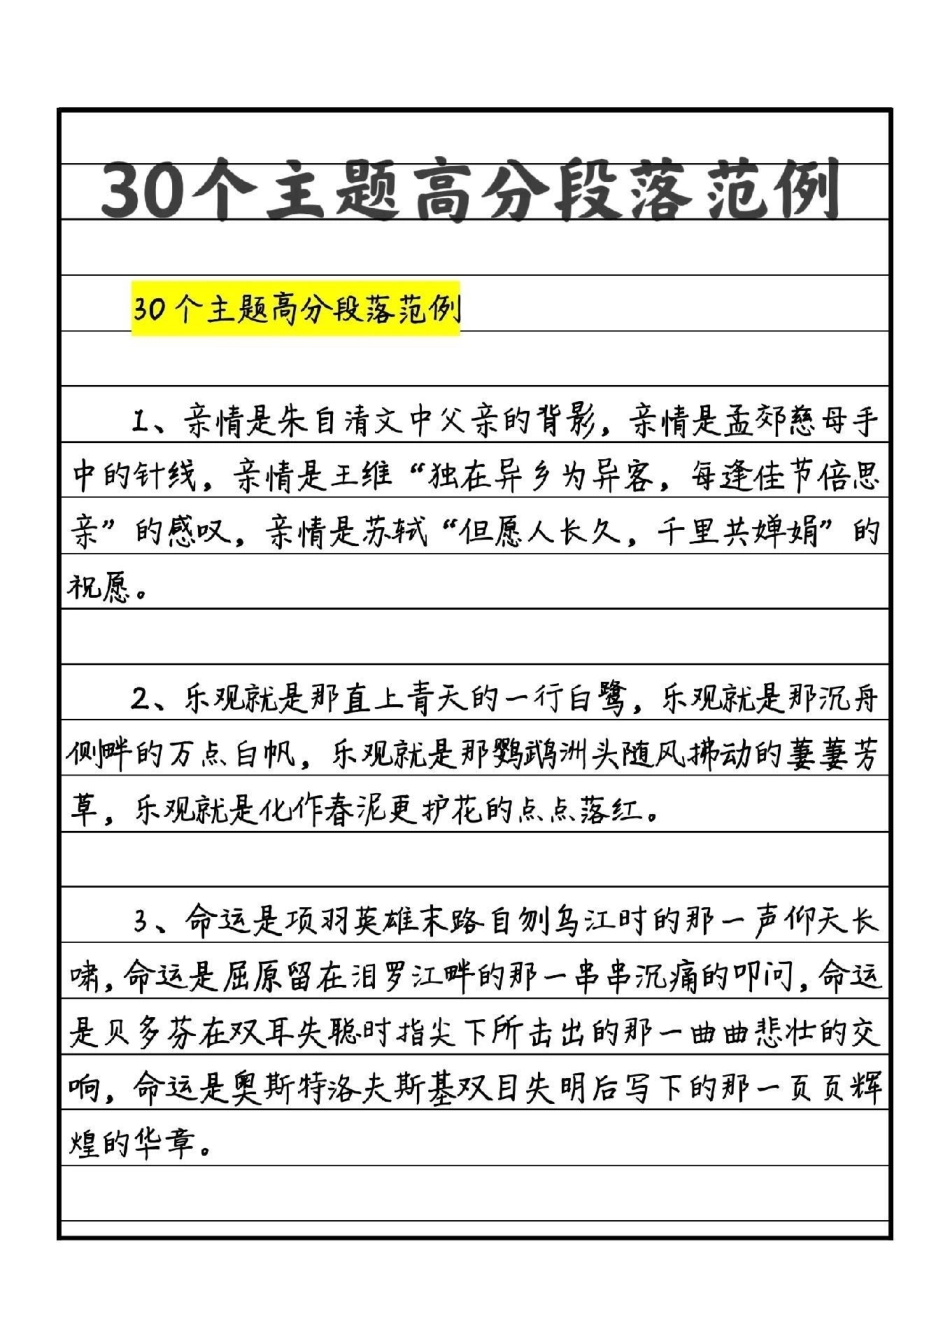 30个主题高分段落范例
30个主题高分段落范例
1、亲情是朱自清文中父亲的背影，亲情是孟郊慈母手
中的针线，亲情是王维“独在异乡为异客，每逢佳节倍思
亲”的感叹，亲情是苏轼“但愿人长久，千里共婵娟”的
祝愿。
2、乐观就是那直上青天的一行白鹭，乐观就是那沉舟
侧畔的万点白帆，乐观就是那鹦鹉洲头随风拂动的萋萋芳
草，乐观就是化作春泥更护花的点点落红。
3、命运是项羽英雄末路自刎乌江时的那一声仰天长
啸，命运是屈原留在汨罗江畔的那一串串沉痛的叩问，命运
是贝多芬在双耳失聪时指尖下所击出的那一曲曲悲壮的交
响，命运是奥斯特洛夫斯基双目失明后写下的那一页页辉
煌的华章。